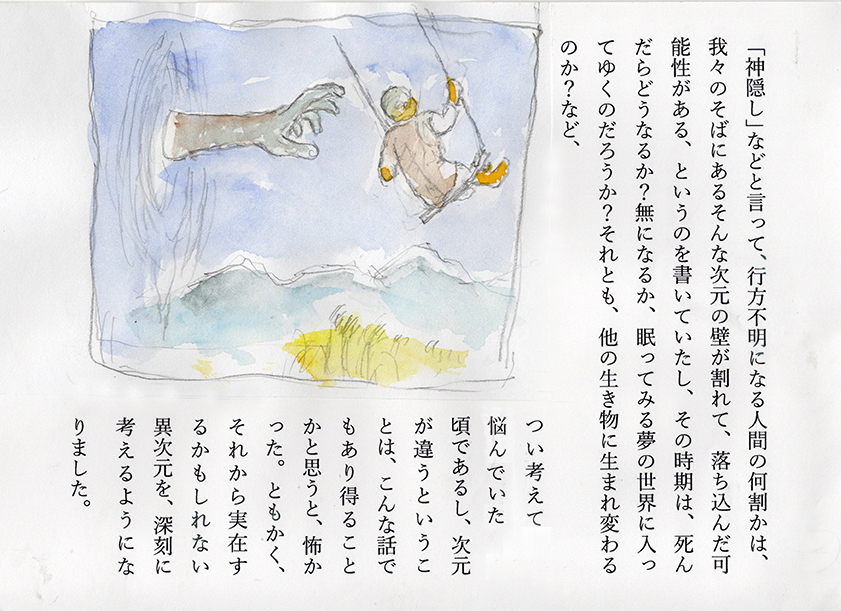 「神隠し」などと言って、行方不明になる人間の何割かは、
我々のそばにあるそんな次元の壁が割れて、落ち込んだ可
能性がある、というのを書いていたし、その時期は、死ん
だらどうなるか?無になるか、眠ってみる夢の世界に入っ
てゆくのだろうか?それとも、他の生き物に生まれ変わる
のか?など、
つい考えて
悩んでいた
頃であるし、次元
が違うというこ
とは、こんな話で
もあり得ること
かと思うと、怖か
った。ともかく、
それから実在す
るかもしれない
異次元を、深刻に
考えるようにな
りました。